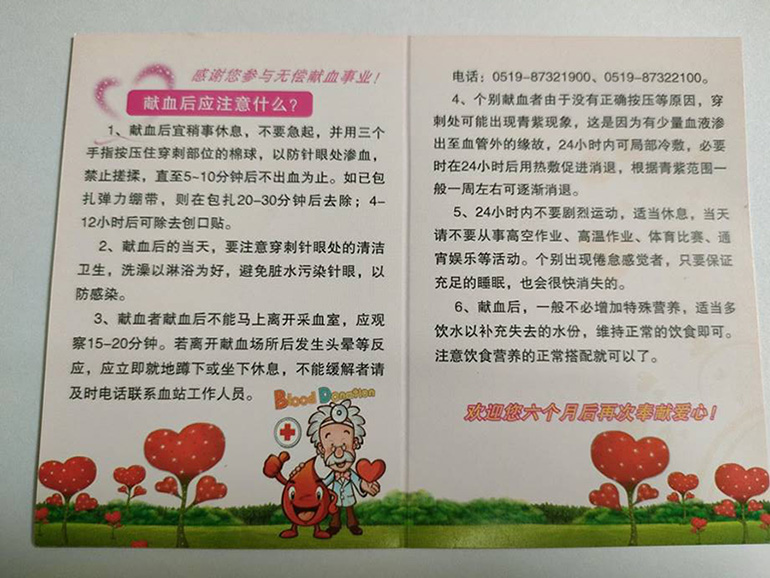 感谢您参与无偿献血事业！
献血后应注意什么？
1、献血后宜稍事休息，不要急起，并用三个
手指按压住穿刺部位的棉球，以防针眼处渗血，
禁止搓揉，直至5~10分钟后不出血为止。如已包
扎弹力绷带，则在包扎20-30分钟后去除；4-
12小时后可除去创口贴。
2、献血后的当天，要注意穿刺针眼处的清洁
卫生，洗澡以淋浴为好，避免脏水污染针眼，以
防感染。
3、献血者献血后不能马上离开采血室，应观
察15-20分钟。若离开献血场所后发生头晕等反
应，应立即就地蹲下或坐下休息，不能缓解者请
及时电话联系血站工作人员。
Blood Donation
电话：0519-87321900、0519-87322100。
4、个别献血者由于没有正确按压等原因，穿
刺处可能出现青紫现象，这是因为有少量血液渗
出至血管外的缘故，24小时内可局部冷敷，必要
时在24小时后用热敷促进消退，根据青紫范围一
般一周左右可逐渐消退。
5、24小时内不要剧烈运动，适当休息，当天
请不要从事高空作业、高温作业、体育比赛、通
宵娱乐等活动。个别出现倦怠感觉者，只要保证
充足的睡眠，也会很快消失的。
6、献血后，一般不必增加特殊营养，适当多
饮水以补充失去的水份，维持正常的饮食即可。
注意饮食营养的正常搭配就可以了。
欢迎您六个月后再次奉献爱心！